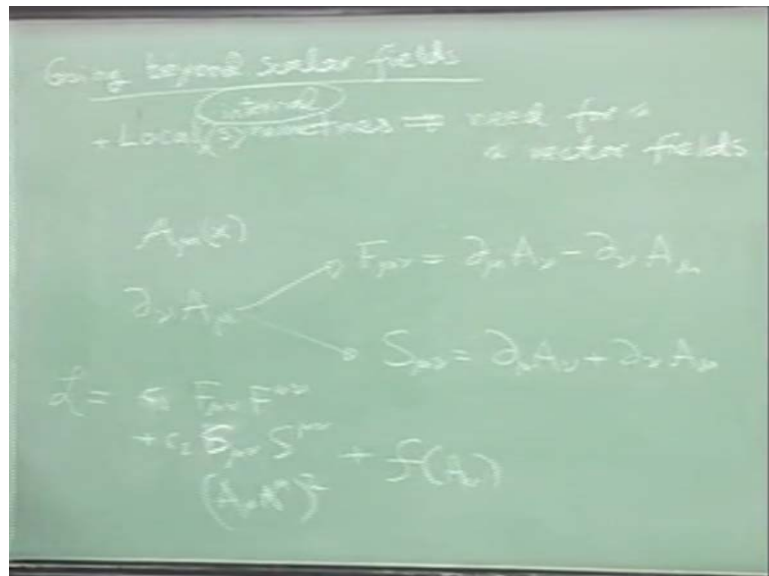 Going beyond scalar fields
internal
+ Local (s) symmetries ⇒ need for n
n vector fields
A_μ(x)
F_μν = ∂_μ A_ν − ∂_ν A_μ
∂_ν A_μ
S_μν = ∂_μ A_ν + ∂_ν A_μ
ℒ = c₁ F_μν F^μν
+ c₂ S_μν S^μν + f(A_μ)
(A_μ A^μ)²